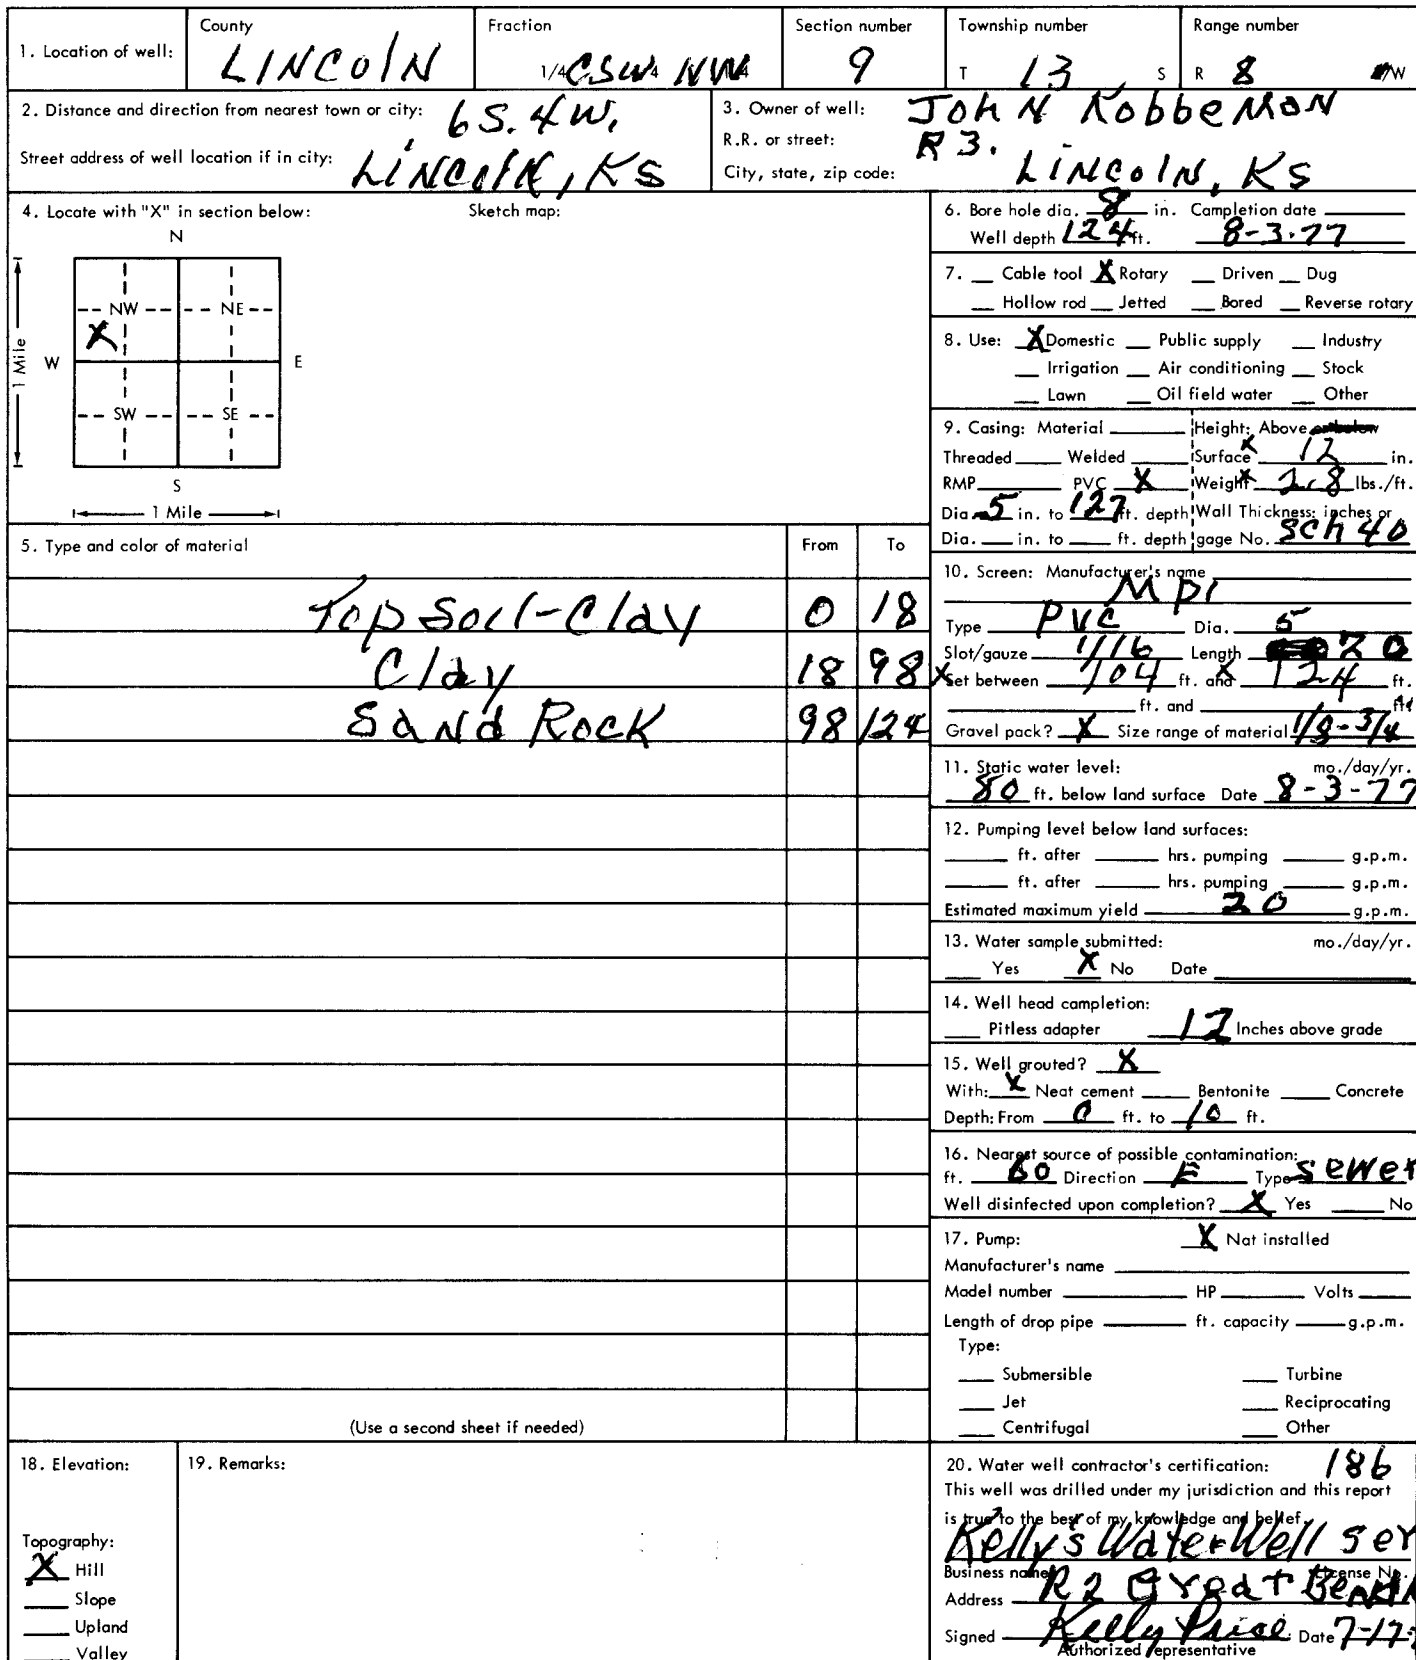 County Fraction Section number Township number Range number
1. Location of well: LINCOLN 1/4 CSW 1/4 NW 1/4 9 T 13 S R 8 W
2. Distance and direction from nearest town or city: 6S. 4W. 3. Owner of well: JOHN KobbeMAN
R.R. or street: R 3.
Street address of well location if in city: LINCOLN, KS City, state, zip code: LINCOLN, KS
4. Locate with "X" in section below: Sketch map:
N
NW NE
X
W E
1 Mile
SW SE
S
1 Mile
5. Type and color of material From To
Top Soil-Clay 0 18
Clay 18 98
Sand Rock 98 124
(Use a second sheet if needed)
6. Bore hole dia. 8 in. Completion date
Well depth 124 ft. 8-3-77
7. Cable tool X Rotary Driven Dug
Hollow rod Jetted Bored Reverse rotary
8. Use: X Domestic Public supply Industry
Irrigation Air conditioning Stock
Lawn Oil field water Other
9. Casing: Material Height: Above or below
Threaded Welded Surface X 12 in.
RMP PVC X Weight X 2.8 lbs./ft.
Dia. 5 in. to 127 ft. depth Wall Thickness: inches or
Dia. in. to ft. depth gage No. Sch 40
10. Screen: Manufacturer's name
MPI
Type PVC Dia. 5
Slot/gauze 1/16 Length 20
X Set between 104 ft. and X 124 ft.
ft. and ft.
Gravel pack? X Size range of material 1/8-3/4
11. Static water level: mo./day/yr.
80 ft. below land surface Date 8-3-77
12. Pumping level below land surfaces:
ft. after hrs. pumping g.p.m.
ft. after hrs. pumping g.p.m.
Estimated maximum yield 20 g.p.m.
13. Water sample submitted: mo./day/yr.
Yes X No Date
14. Well head completion:
Pitless adapter 12 Inches above grade
15. Well grouted? X
With: X Neat cement Bentonite Concrete
Depth: From 0 ft. to 10 ft.
16. Nearest source of possible contamination:
ft. 60 Direction E Type Sewer
Well disinfected upon completion? X Yes No
17. Pump: X Not installed
Manufacturer's name
Model number HP Volts
Length of drop pipe ft. capacity g.p.m.
Type:
Submersible Turbine
Jet Reciprocating
Centrifugal Other
18. Elevation: 19. Remarks:
Topography:
X Hill
Slope
Upland
Valley
20. Water well contractor's certification: 186
This well was drilled under my jurisdiction and this report
is true to the best of my knowledge and belief.
Kelly's Water Well Ser
Business name License No.
Address R2 Great Bend
Signed Kelly Price Date 7-17-
Authorized representative